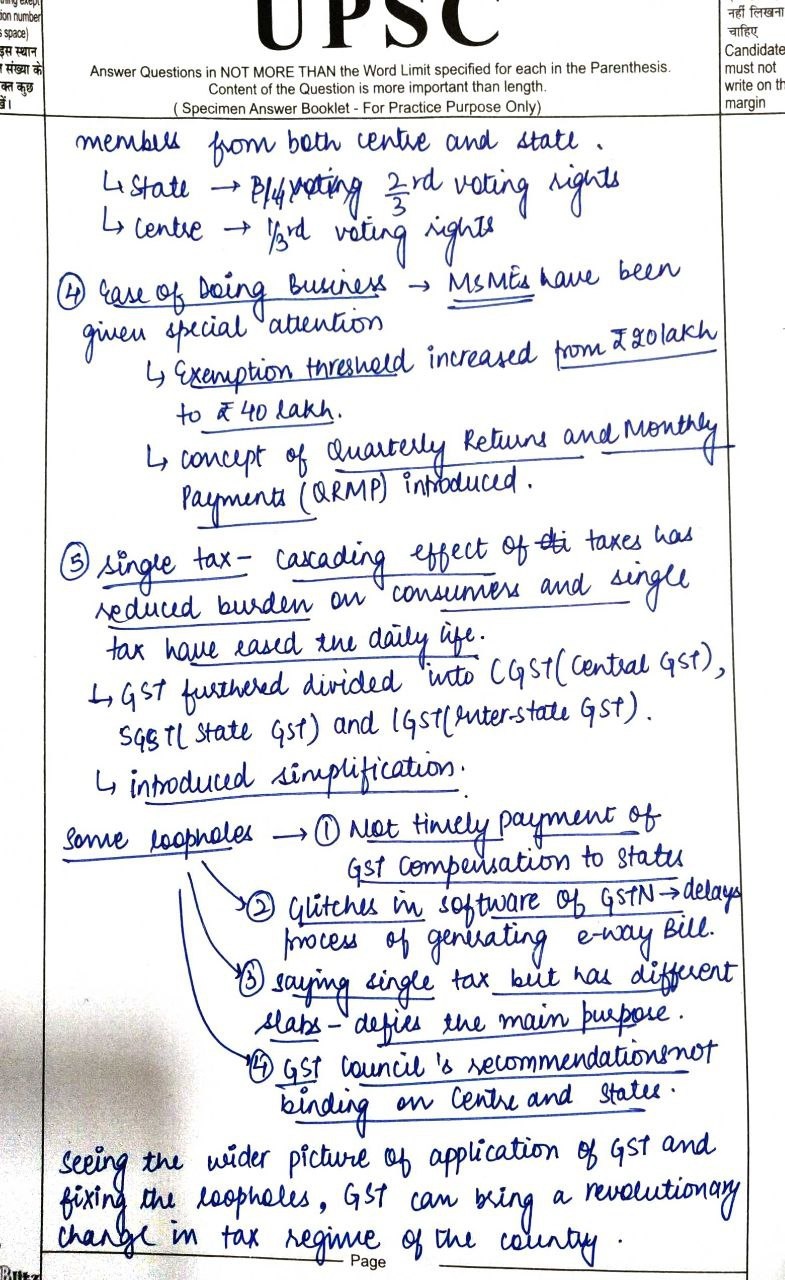 ion number
s space)
इस स्थान
संख्या के
क्त कुछ
UPSC
Answer Questions in NOT MORE THAN the Word Limit specified for each in the Parenthesis.
Content of the Question is more important than length.
( Specimen Answer Booklet - For Practice Purpose Only)
नहीं लिखना
चाहिए
Candidate
must not
write on th
margin
members from both centre and state.
↳ State → 2/3rd voting rights
↳ Centre → 1/3rd voting rights
④ Ease of Doing Business → MSMEs have been
given special attention
↳ Exemption threshold increased from ₹20 lakh
to ₹40 lakh.
↳ concept of Quarterly Returns and Monthly
Payments (QRMP) introduced.
⑤ single tax - cascading effect of taxes has
reduced burden on consumers and single
tax have eased the daily life.
↳ GST furthered divided into CGST (Central GST),
SGST (State GST) and IGST (Inter-state GST).
↳ introduced simplification.
Some loopholes → ① Not timely payment of
GST Compensation to States
② Glitches in software of GSTN → delays
process of generating e-way Bill.
③ saying single tax but has different
slabs - defies the main purpose.
④ GST Council's recommendations not
binding on Centre and States.
Seeing the wider picture of application of GST and
fixing the loopholes, GST can bring a revolutionary
change in tax regime of the country.
Page